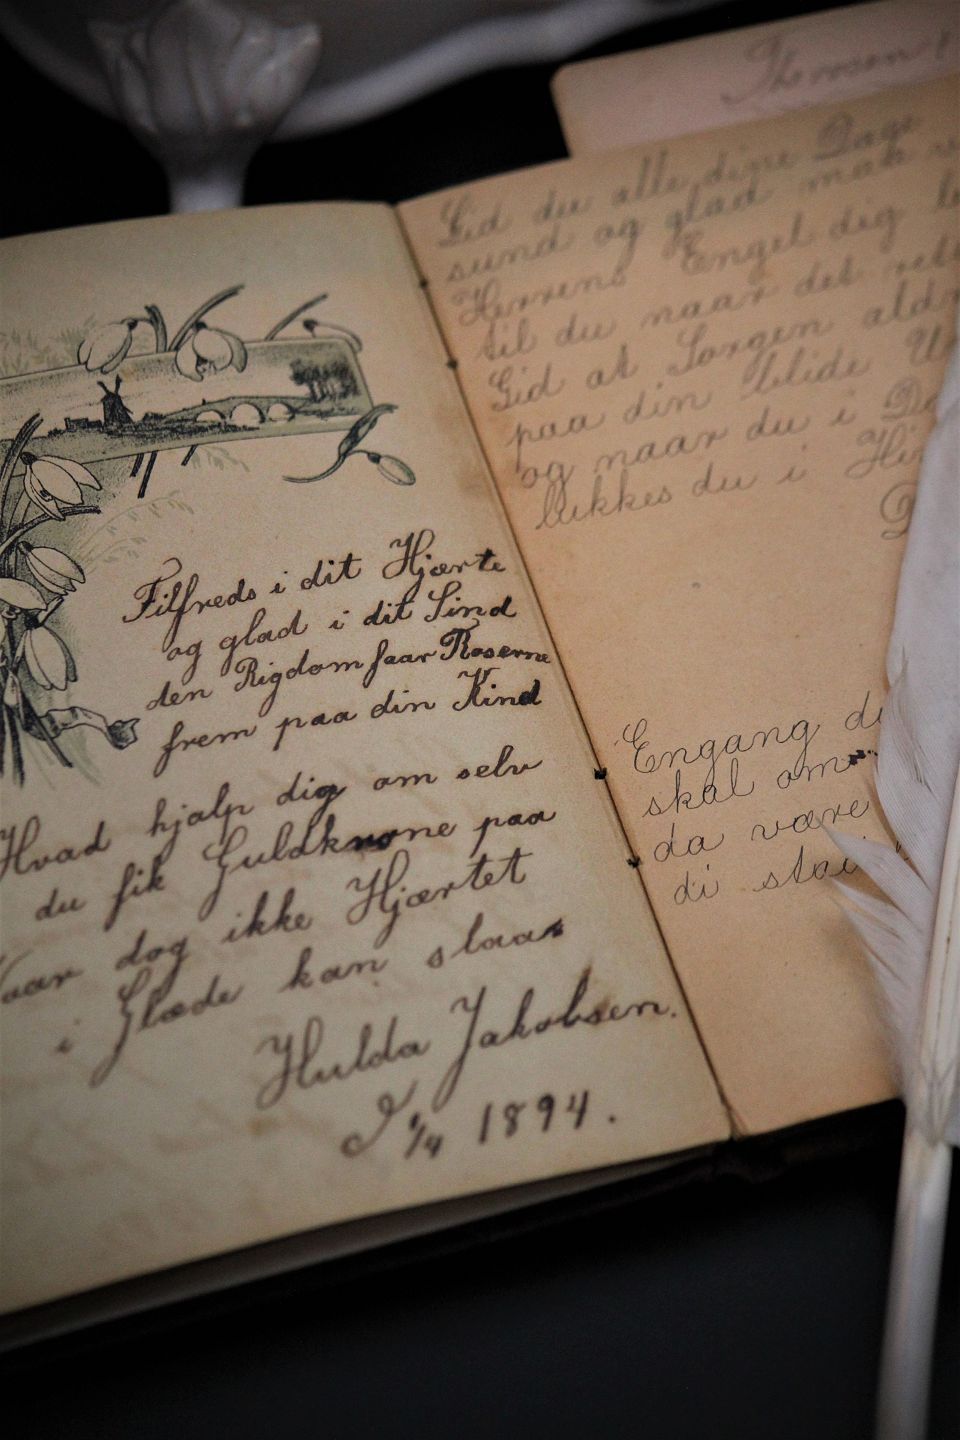 Tilfreds i dit Hjærte
og glad i dit Sind
den Rigdom faar Roserne
frem paa din Kind
Hvad hjalp dig om selv
du fik Guldkrone paa
Naar dog ikke Hjærtet
i Glæde kan slaa
Hulda Jakobsen.
1/4 1894.
Gid du alle dine Dage
sund og glad maa
Herrens Engel dig
til du naar det
Gid at Sorgen
paa din blide
og naar du i
lukkes du i
Engang
skal om
da være
di stai